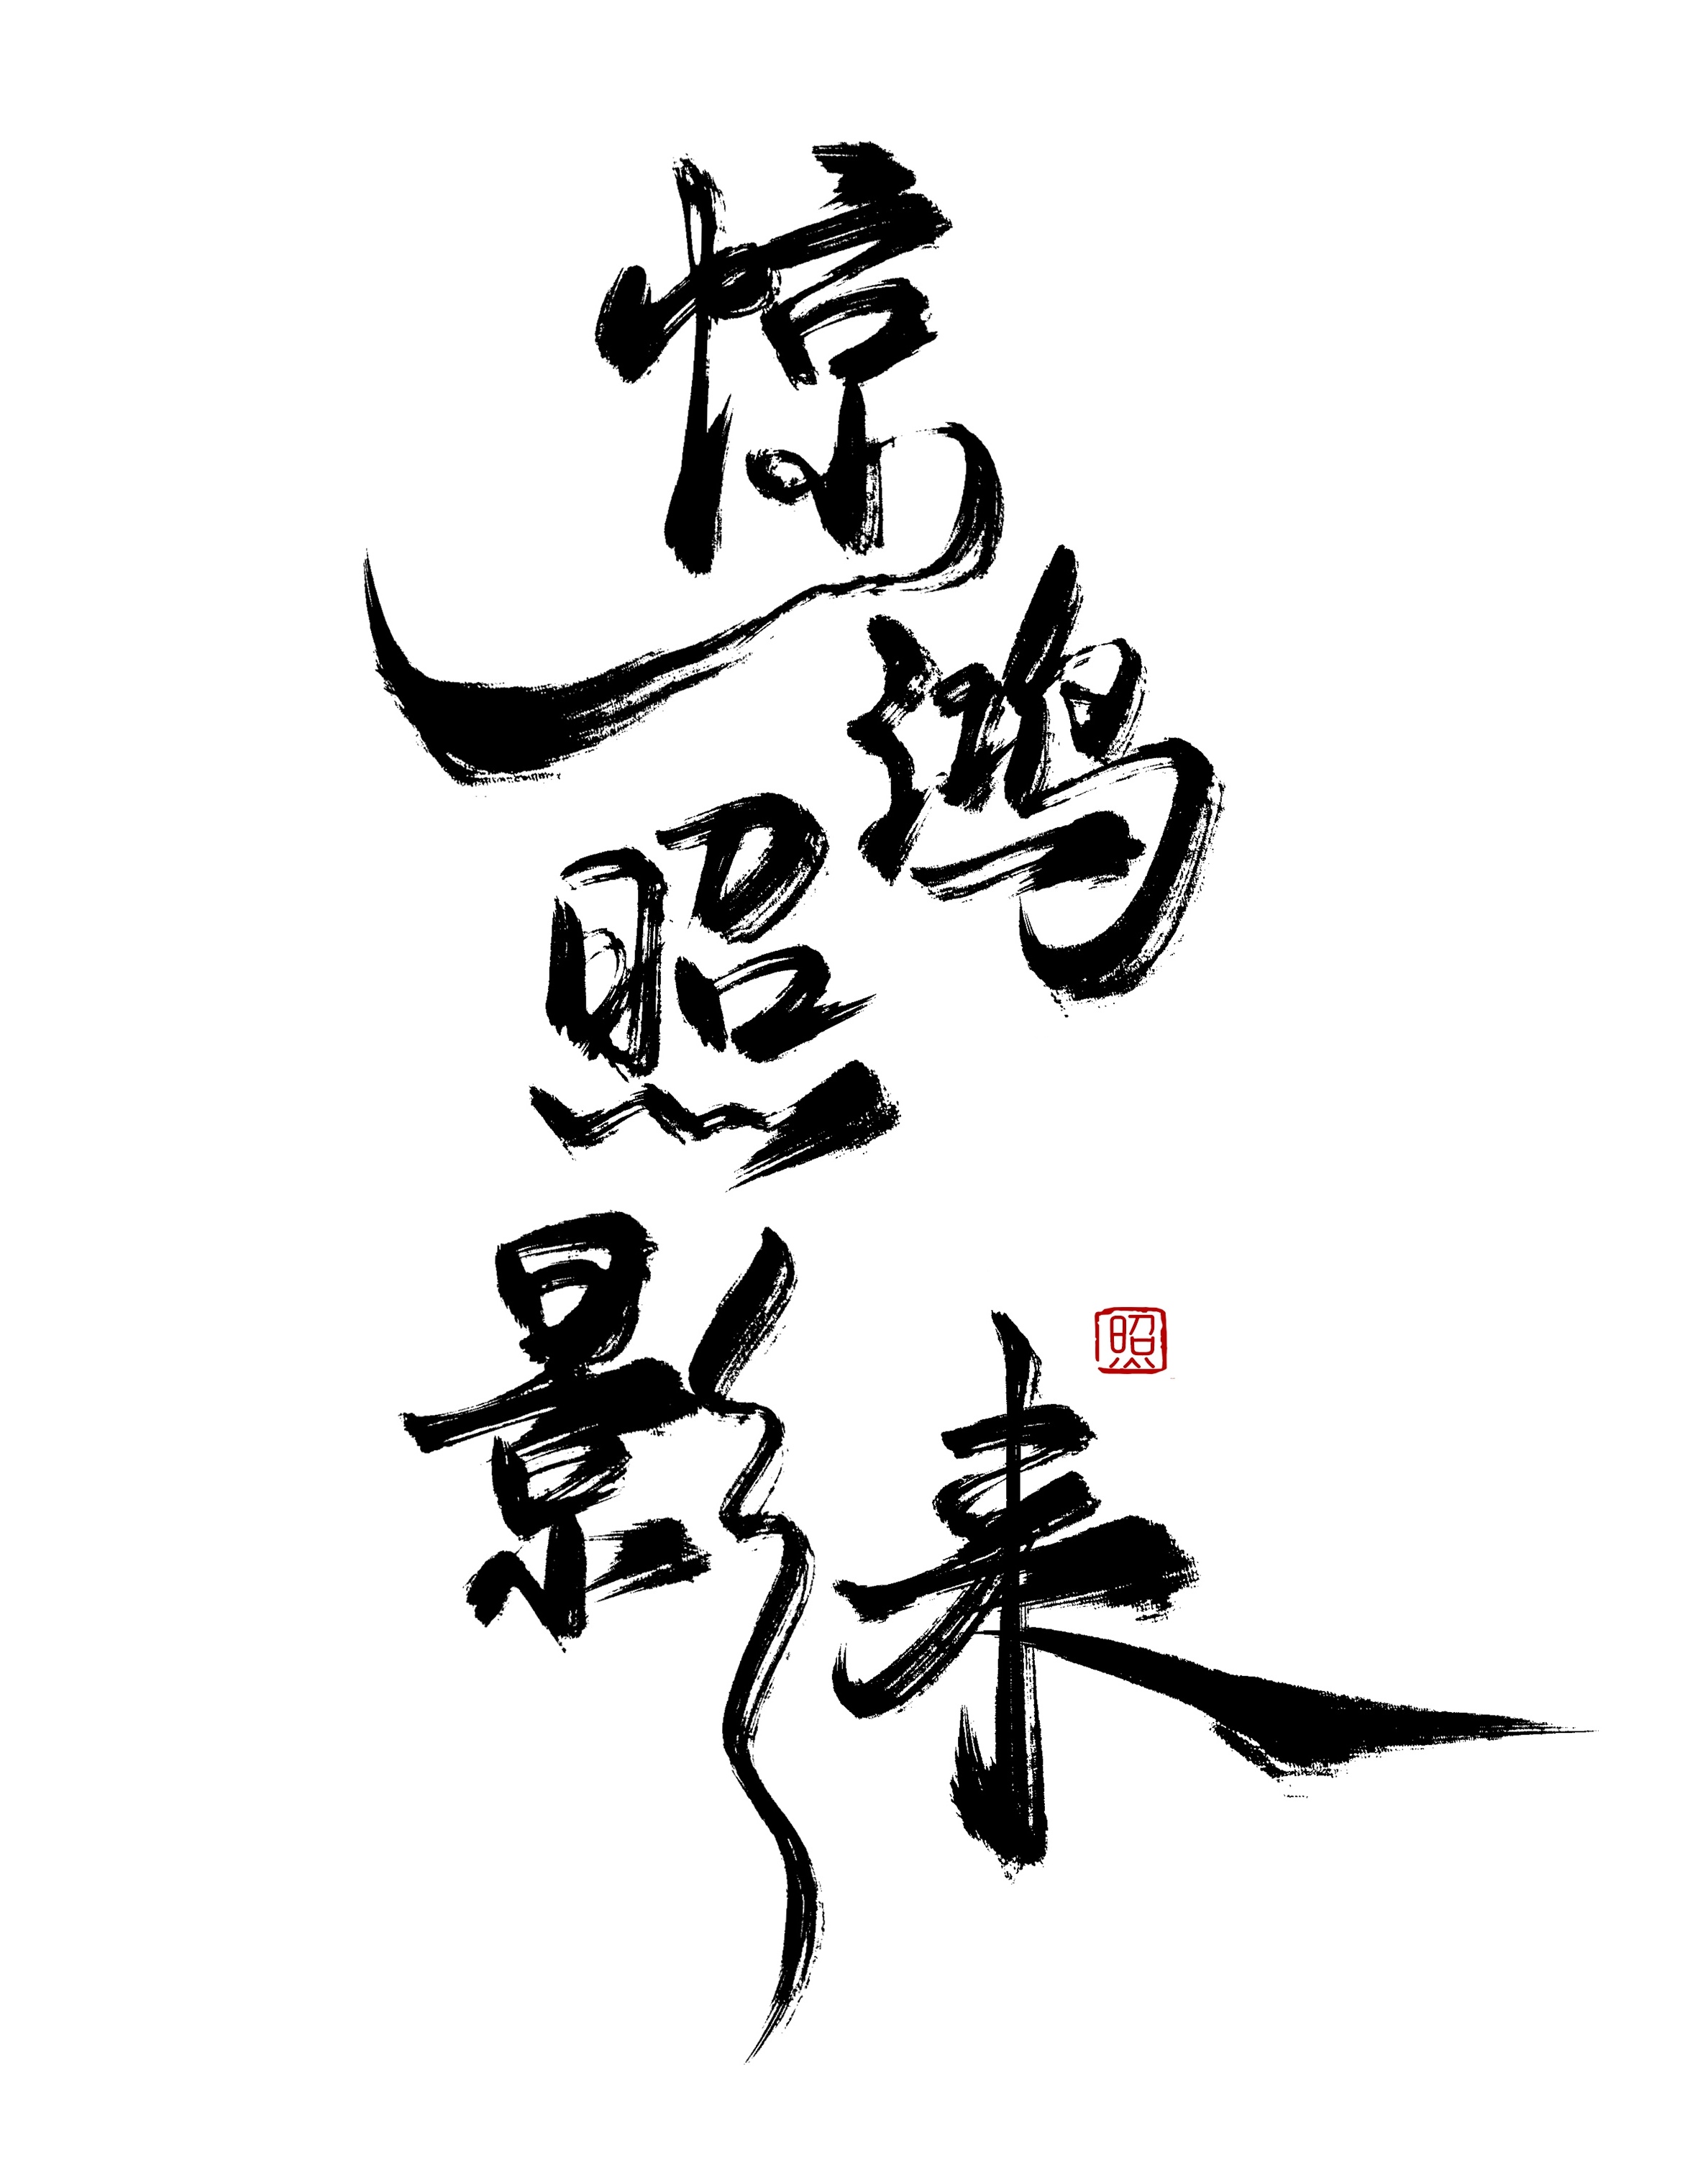 惊鸿照影来
照